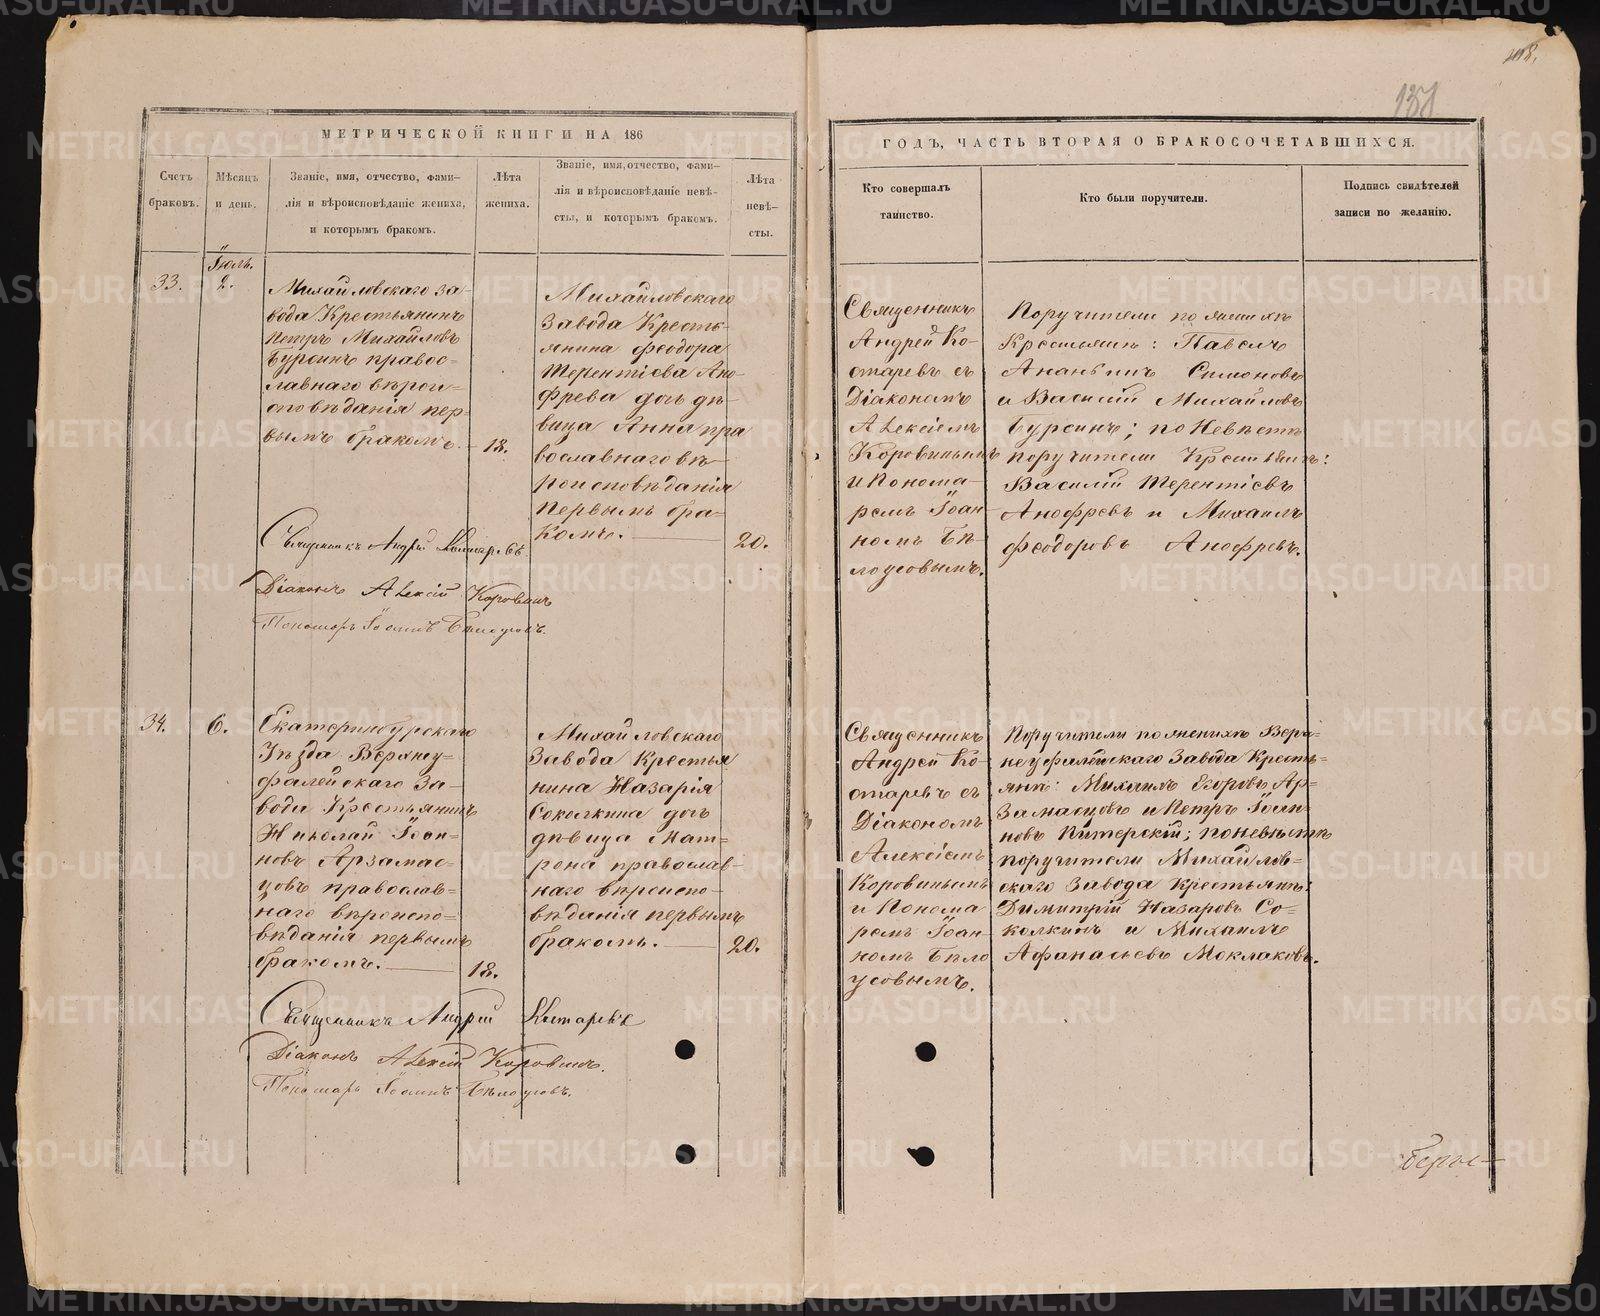 118.
131
МЕТРИЧЕСКОЙ КНИГИ НА 186
Счетъ
браковъ.
Мѣсяцъ
и день.
Званіе, имя, отчество, фами-
лія и вѣроисповѣданіе жениха,
и которымъ бракомъ.
Лѣта
жениха.
Званіе, имя, отчество, фами-
лія и вѣроисповѣданіе невѣ-
сты, и которымъ бракомъ.
Лѣта
невѣ-
сты.
ГОДЪ, ЧАСТЬ ВТОРАЯ О БРАКОСОЧЕТАВШИХСЯ.
Кто совершалъ
таинство.
Кто были поручители.
Подпись свидѣтелей
записи по желанію.
33.
Іюль.
2.
Михайловскаго за-
вода Крестьянинъ
Петръ Михайловъ
Бурсинъ правос-
лавнаго вѣрои-
сповѣданія пер-
вымъ бракомъ.
18.
Михайловскаго
Завода Кресть-
янина Феодора
Терентіева Ано-
фрева дочь дѣ-
вица Анна пра
вославнаго вѣ-
роисповѣданія
первымъ бра-
комъ.
20.
Священникъ
Андрей Ко-
старевъ съ
Діакономъ
Алексіемъ
Коровинымъ
и Понома-
ремъ Іоан
номъ Бѣ-
лоусовымъ.
Поручители по женихѣ
Крестьяне: Павелъ
Ананьинъ Симоновъ
и Василій Михайловъ
Бурсинъ; по Невѣстѣ
поручители Крестьяне:
Василій Терентіевъ
Анофревъ и Михаилъ
Феодоровъ Анофревъ.
Священникъ Андрей Костаревъ
Діаконъ Алексій Коровинъ
Пономарь Іоаннъ Бѣлоусовъ.
34.
6.
Екатеринбургскаго
Уѣзда Верхнеу-
фалейскаго За-
вода Крестьянинъ
Николай Іоан-
новъ Арзамас-
цовъ православ-
наго вѣроиспо-
вѣданія первымъ
бракомъ.
18.
Михайловскаго
Завода Крестья
нина Назарія
Соколкина дочь
дѣвица Мат-
рона православ-
наго вѣроиспо-
вѣданія первымъ
бракомъ.
20.
Священникъ
Андрей Ко-
старевъ съ
Діакономъ
Алексіемъ
Коровинымъ
и Понома
ремъ Іоан-
номъ Бѣло
усовымъ.
Поручители по женихѣ Верх-
неуфалейскаго Завода Кресть-
яне: Михаилъ Егоровъ Ар-
замасцовъ и Петръ Іоан-
новъ Питерскій; по невѣстѣ
поручители Михайлов-
скаго Завода Крестьяне:
Димитрій Назаровъ Со-
колкинъ и Михаилъ
Афанасьевъ Моклаковъ.
Священникъ Андрей Костаревъ
Діаконъ Алексій Коровинъ.
Пономарь Іоаннъ Бѣлоусовъ.
METRIKI.GASO-URAL.RU